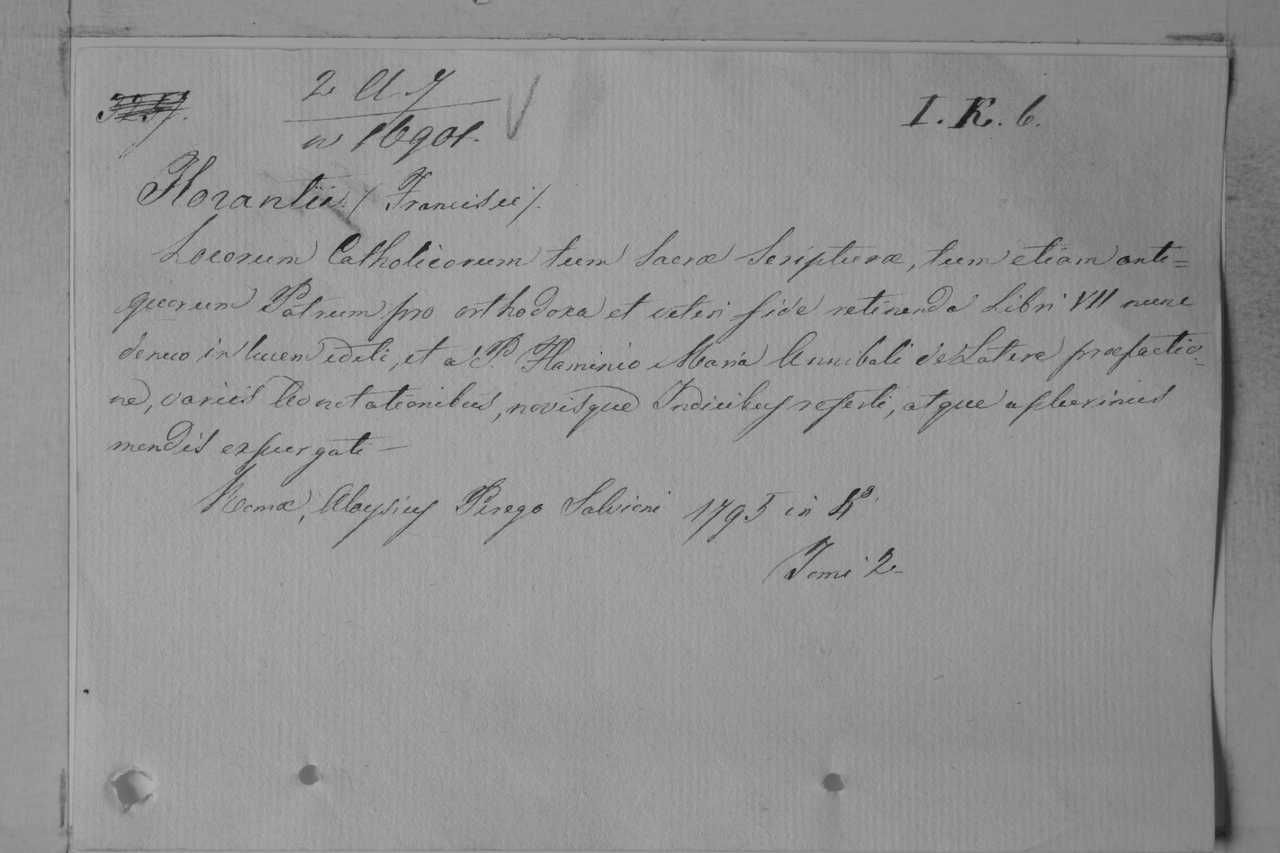 2 A. 7
I. K. 6.
n 16901.
Horantii (Francisci).
Locorum Catholicorum tum Sacræ Scripturæ, tum etiam anti=
quorum Patrum pro orthodoxa et veteri fide retinenda Libri VII nunc
denuo in lucem editi, et a P. Flaminio Maria Annibali de Latera præfactio-
ne, variis Adnotationibus, novisque Indicibus referti, atque a plurimis
mendis expurgati —
Romæ, Aloysius Perego Salvioni 1795 in 4º
Tomi 2